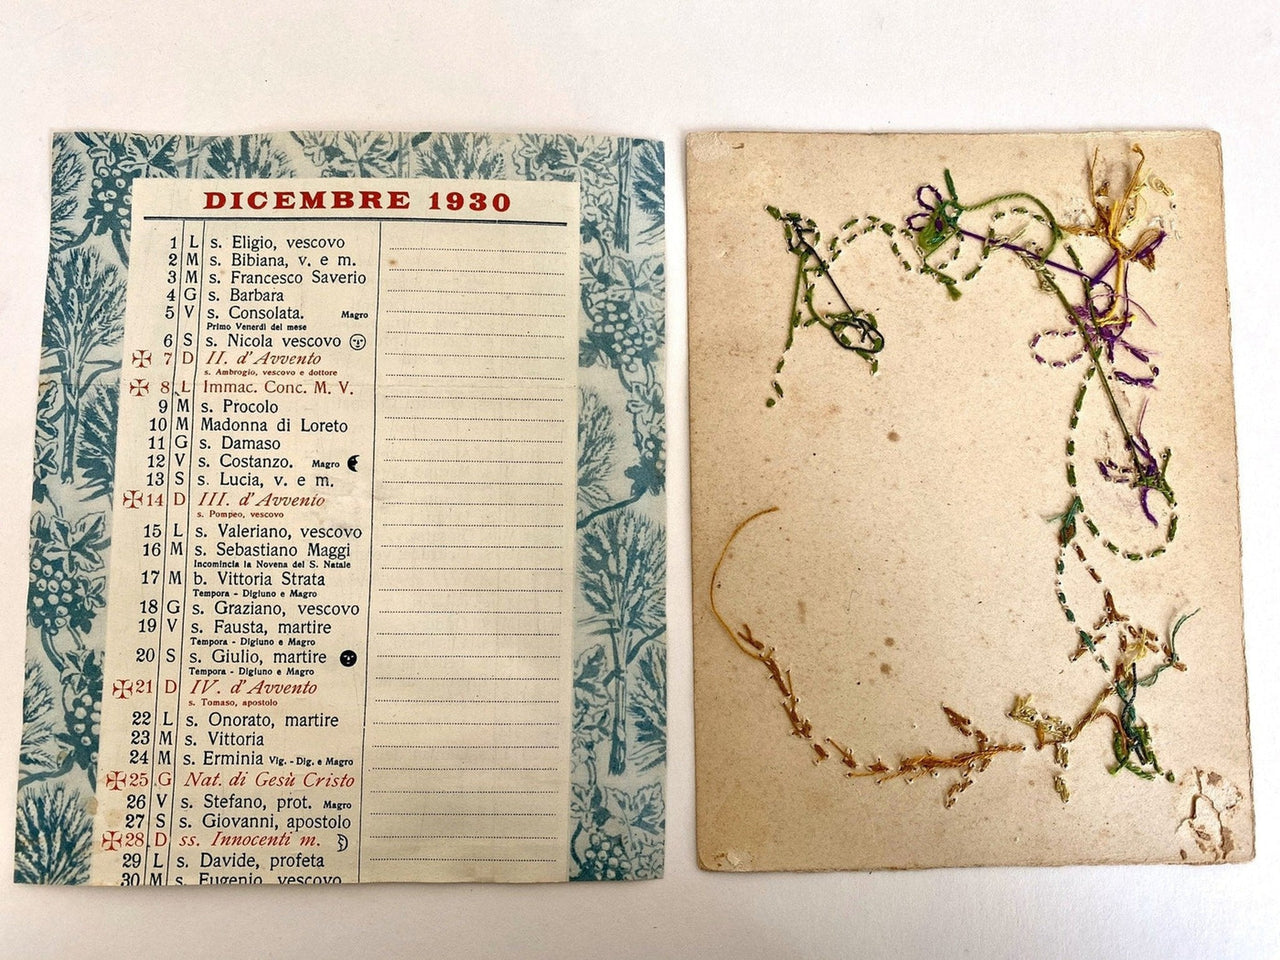 DICEMBRE 1930
1 L s. Eligio, vescovo
2 M s. Bibiana, v. e m.
3 M s. Francesco Saverio
4 G s. Barbara
5 V s. Consolata. Magro
Primo Venerdì del mese
6 S s. Nicola vescovo
7 D II. d'Avvento
s. Ambrogio, vescovo e dottore
8 L Immac. Conc. M. V.
9 M s. Procolo
10 M Madonna di Loreto
11 G s. Damaso
12 V s. Costanzo. Magro
13 S s. Lucia, v. e m.
14 D III. d'Avvenio
s. Pompeo, vescovo
15 L s. Valeriano, vescovo
16 M s. Sebastiano Maggi
Incomincia la Novena del S. Natale
17 M b. Vittoria Strata
Tempora - Digiuno e Magro
18 G s. Graziano, vescovo
19 V s. Fausta, martire
Tempora - Digiuno e Magro
20 S s. Giulio, martire
Tempora - Digiuno e Magro
21 D IV. d'Avvento
s. Tomaso, apostolo
22 L s. Onorato, martire
23 M s. Vittoria
24 M s. Erminia Vig. - Dig. e Magro
25 G Nat. di Gesù Cristo
26 V s. Stefano, prot. Magro
27 S s. Giovanni, apostolo
28 D ss. Innocenti m.
29 L s. Davide, profeta
30 M s. Eugenio, vescovo